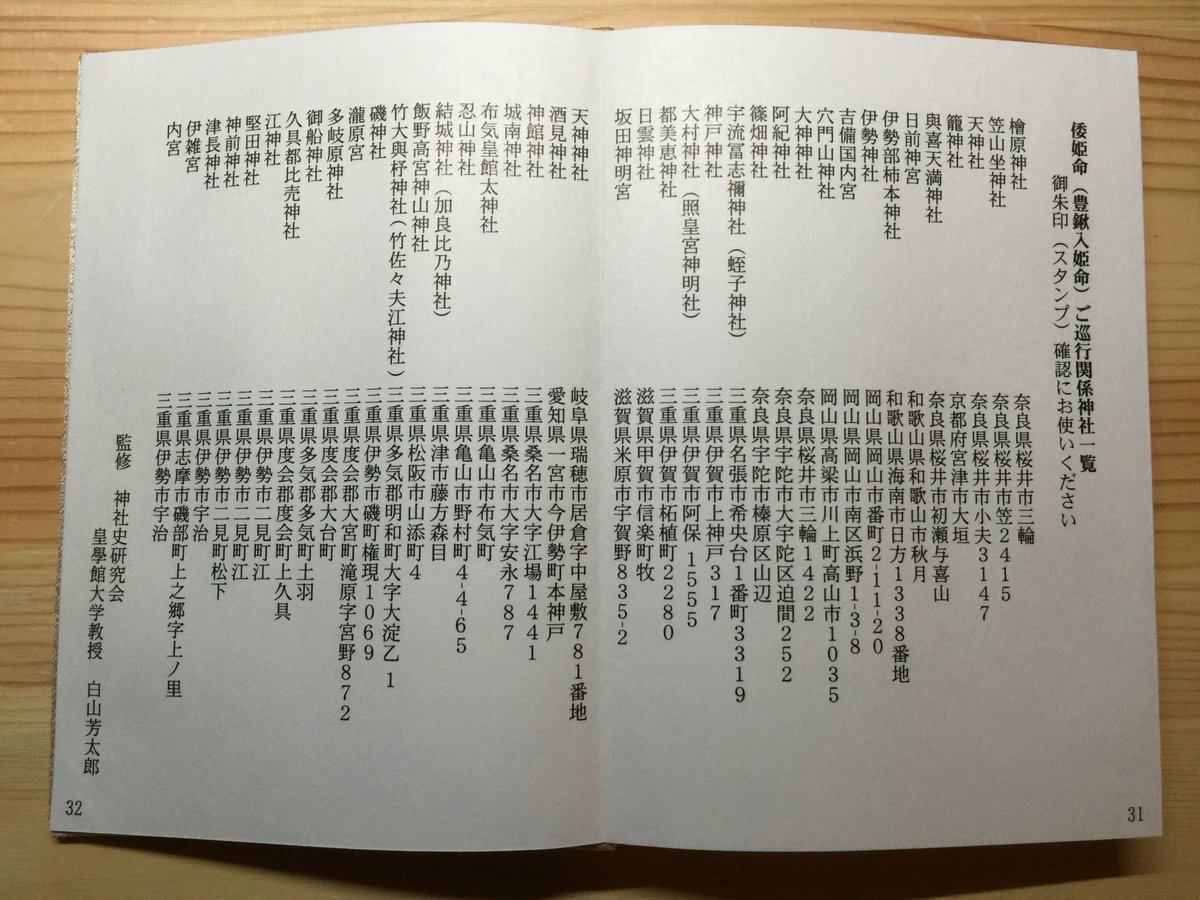 倭姫命（豊鍬入姫命）ご巡行関係神社一覧
御朱印（スタンプ）確認にお使いください
檜原神社 奈良県桜井市三輪
笠山坐神社 奈良県桜井市笠2415
天神社 奈良県桜井市小夫3147
籠神社 京都府宮津市大垣
與喜天満神社 奈良県桜井市初瀬与喜山
日前神宮 和歌山県和歌山市秋月
伊勢部柿本神社 和歌山県海南市日方1338番地
伊勢神社 岡山県岡山市番町2-11-20
吉備国内宮 岡山県岡山市南区浜野1-3-8
穴門山神社 岡山県高梁市川上町高山市1035
大神神社 奈良県桜井市三輪1422
阿紀神社 奈良県宇陀市大宇陀区迫間252
篠畑神社 奈良県宇陀市榛原区山辺
宇流冨志禰神社（蛭子神社） 三重県名張市希央台1番町3319
神戸神社 三重県伊賀市上神戸317
大村神社（照皇宮神明社） 三重県伊賀市阿保1555
都美恵神社 三重県伊賀市柘植町2280
日雲神社 滋賀県甲賀市信楽町牧
坂田神明宮 滋賀県米原市宇賀野835-2
31
天神神社 岐阜県瑞穂市居倉字中屋敷781番地
酒見神社 愛知県一宮市今伊勢町本神戸
神館神社 三重県桑名市大字江場1441
城南神社 三重県桑名市大字安永787
布気皇館太神社 三重県亀山市布気町
忍山神社 三重県亀山市野村町4-4-65
結城神社（加良比乃神社） 三重県津市藤方森目
飯野高宮神山神社 三重県松阪市山添町4
竹大與杼神社（竹佐々夫江神社） 三重県多気郡明和町大字大淀乙1
磯神社 三重県伊勢市磯町権現1069
瀧原宮 三重県度会郡大宮町滝原字宮野872
多岐原神社 三重県度会郡大台町
御船神社 三重県多気郡多気町土羽
久具都比売神社 三重県度会郡度会町上久具
江神社 三重県伊勢市二見町江
堅田神社 三重県伊勢市二見町江
神前神社 三重県伊勢市二見町松下
津長神社 三重県伊勢市宇治
伊雑宮 三重県志摩市磯部町上之郷字上ノ里
内宮 三重県伊勢市宇治
監修 神社史研究会
皇學館大学教授 白山芳太郎
32